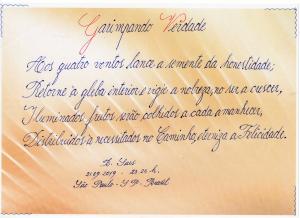 Garimpando Verdade
Aos quatro ventos lance a semente da honestidade;
Retorne à gleba interior e vigie a nobreza, no ser a crescer,
Iluminados frutos serão colhidos a cada amanhecer,
Distribuídos a necessitados no Caminho, eterniza a Felicidade.
21.09.2019 - 23:25 h.
São Paulo - SP - Brasil